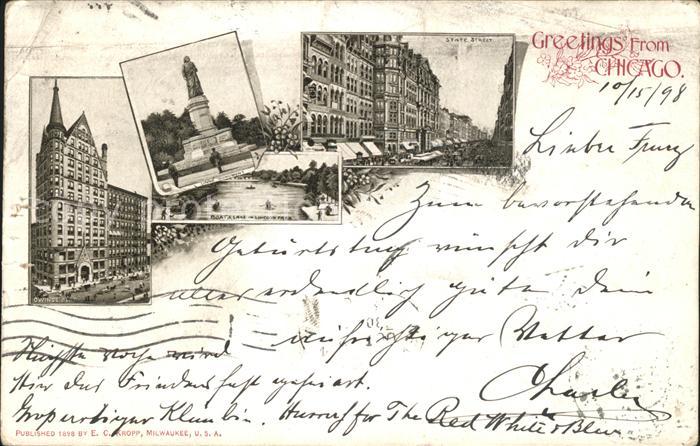 Greetings From
CHICAGO.
STATE STREET.
10/15/98
Lieber Franz
Zum bevorstehenden
BOATING LAKE IN LINCOLN PARK
Geburtstag wünscht dir
OWINGS BL.
alles erdenklich gute dein
aufrichtiger Vetter
Nächste woche wird
Charles
Hier das Friedensfest gefeiert.
Hurrah for The Red White & Blue
PUBLISHED 1898 BY E. C. KROPP, MILWAUKEE, U. S. A.